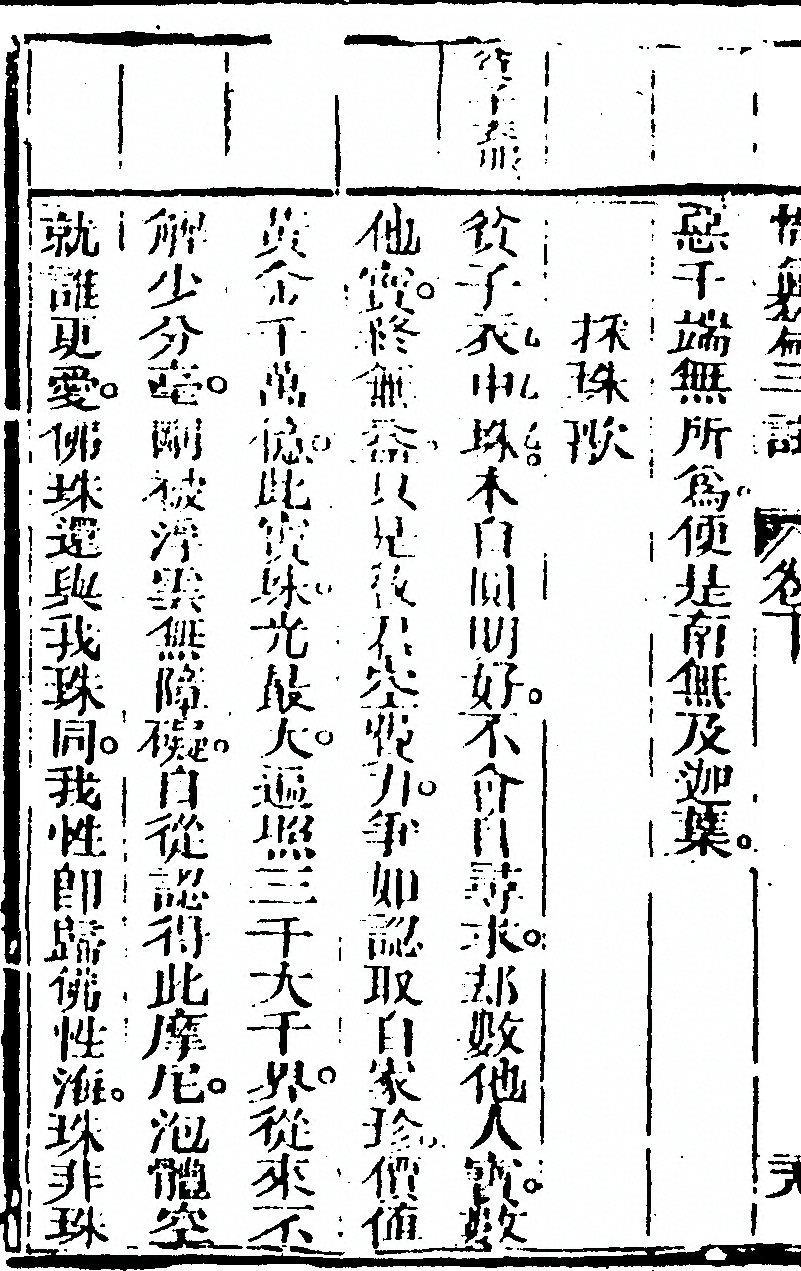 悟眞篇三註 卷下
惡千端無所爲。便是南無及迦葉。
採珠歌
貧子衣中珠。本自圓明好。不會自尋求。却數他人寶。數
他寶。終無益。只是敎君空費力。爭如認取自家珍。價值
黃金千萬億。此寶珠。光最大。遍照三千大千界。從來不
解少分毫。剛被浮雲無障礙。自從認得此摩尼。泡體空
就誰更愛。佛珠還與我珠同。我性卽歸佛性海。珠非珠